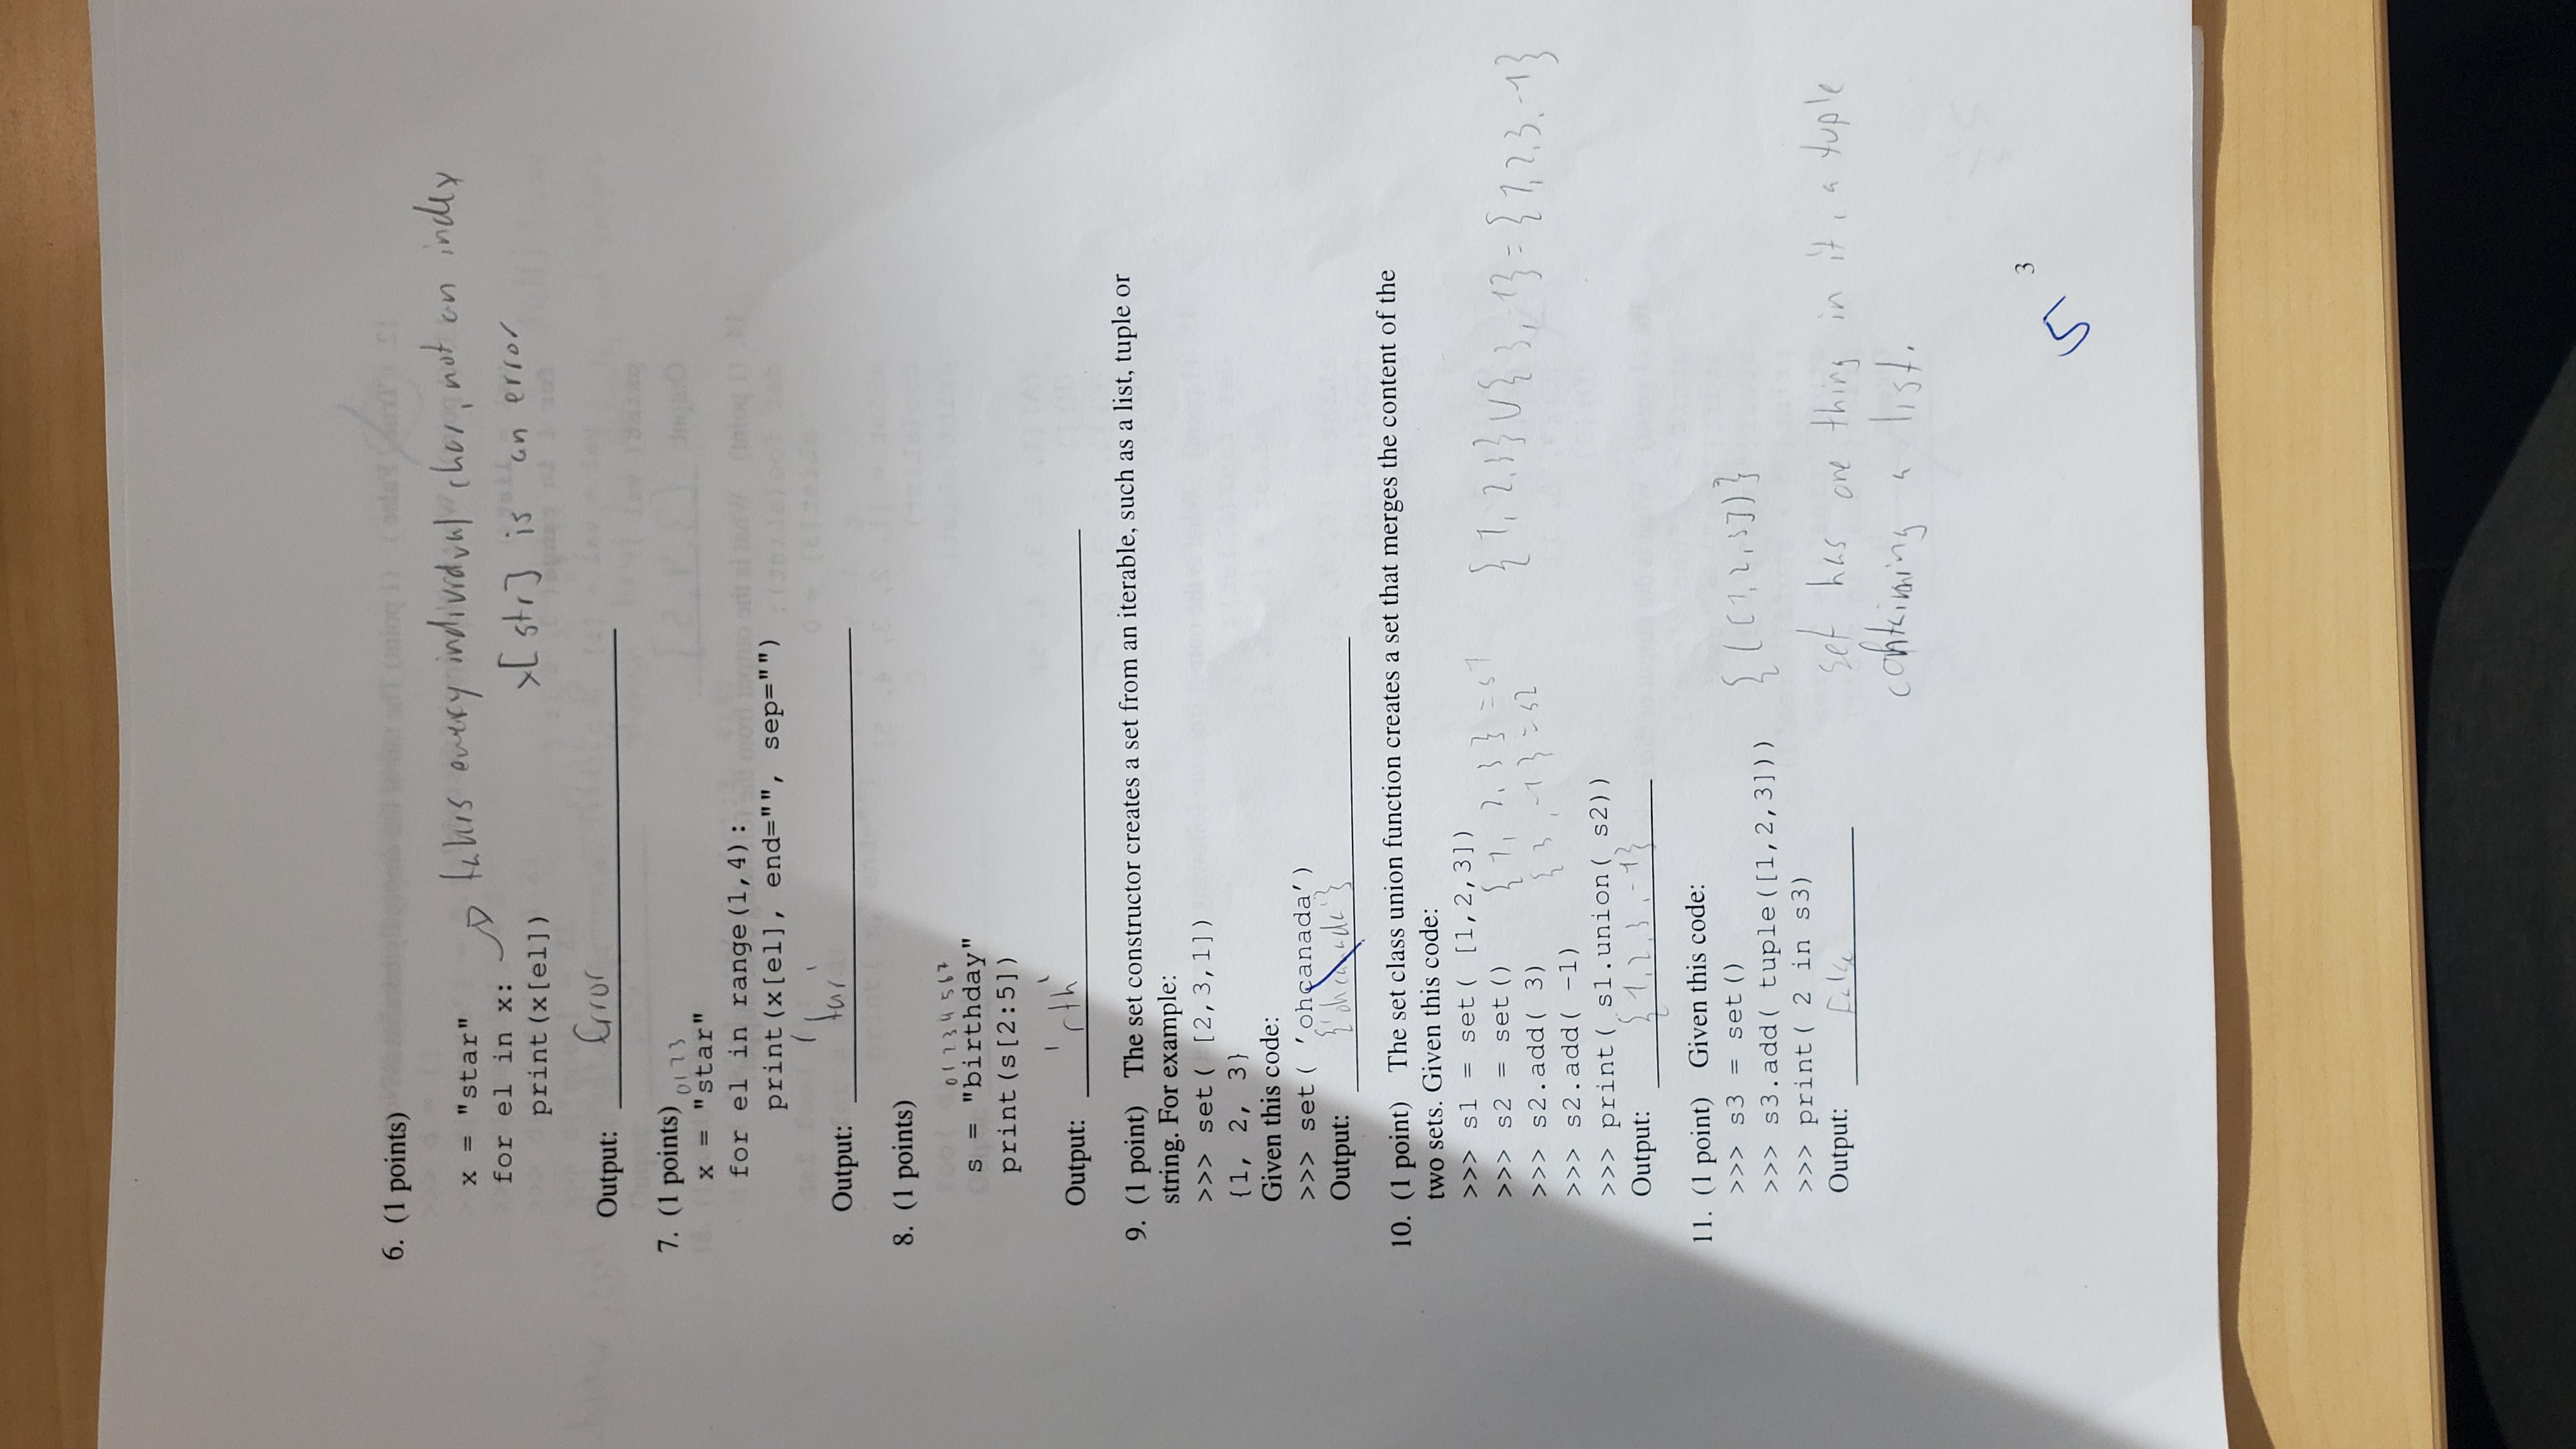 6. (1 points)
x = "star"
for el in x:
print(x[el])
takes every individual char, not an index
x[str] is an error
Output: Error
7. (1 points)
0123
x = "star"
for el in range(1,4):
print(x[el], end="", sep="")
Output: 'tar'
8. (1 points)
01234567
s = "birthday"
print(s[2:5])
Output: 'rth'
9. (1 point) The set constructor creates a set from an iterable, such as a list, tuple or
string. For example:
>>> set( [2,3,1])
{1, 2, 3}
Given this code:
>>> set( 'ohcanada')
Output: {'ohcanada'}
10. (1 point) The set class union function creates a set that merges the content of the
two sets. Given this code:
>>> s1 = set( [1,2,3])
>>> s2 = set()
>>> s2.add( 3)
>>> s2.add( -1)
>>> print( s1.union( s2))
{1, 2, 3} = s1
{3, -1} = s2
{1, 2, 3} ∪ {3, -1} = {1, 2, 3, -1}
Output: {1, 2, 3, -1}
11. (1 point) Given this code:
>>> s3 = set()
>>> s3.add( tuple([1,2,3]))
>>> print( 2 in s3)
{([1, 2, 3])}
Output: False
set has one thing in it, a tuple
containing a list.
3
5